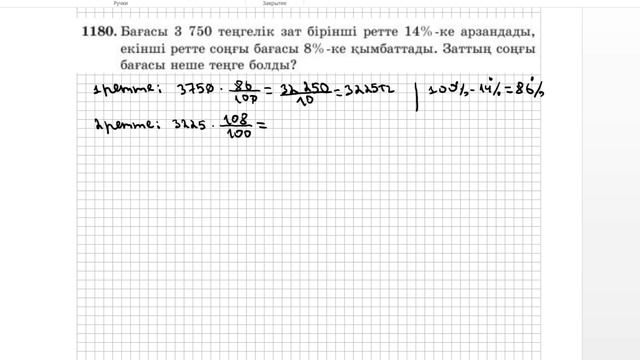 Ручки Закрытие
1180. Бағасы 3 750 теңгелік зат бірінші ретте 14%-ке арзандады,
екінші ретте соңғы бағасы 8%-ке қымбаттады. Заттың соңғы
бағасы неше теңге болды?
1 ретте: 3750 · 86/100 = 32 250/10 = 3225тг | 100% - 14% = 86%
2 ретте: 3225 · 108/100 =